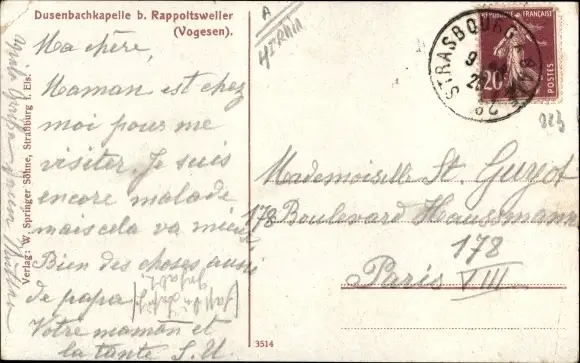 Dusenbachkapelle b. Rappoltsweiler
(Vogesen).
Ma chère,
Maman est chez
moi pour me
visiter. Je suis
encore malade
mais cela va mieux
Bien des choses aussi
de papa
Votre maman et
la tante S. U
Verlag: W. Springer Söhne, Straßburg i. Els.
3514
A
STRASBOURG
9
RÉPUBLIQUE FRANÇAISE
20
POSTES
223
Mademoiselle St. Guyot
178 Boulevard Haussmann
178
Paris VIII